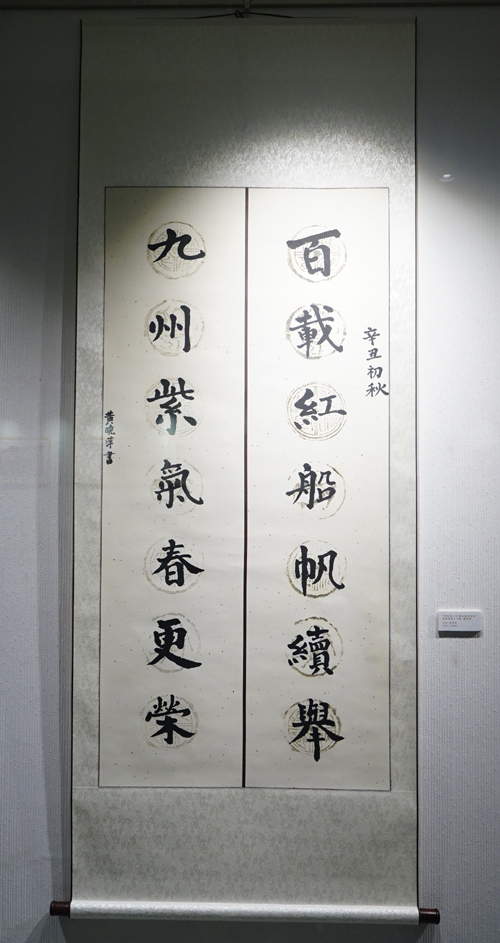 百載紅船帆續舉
辛丑初秋
九州紫氣春更榮
黄曉萍書